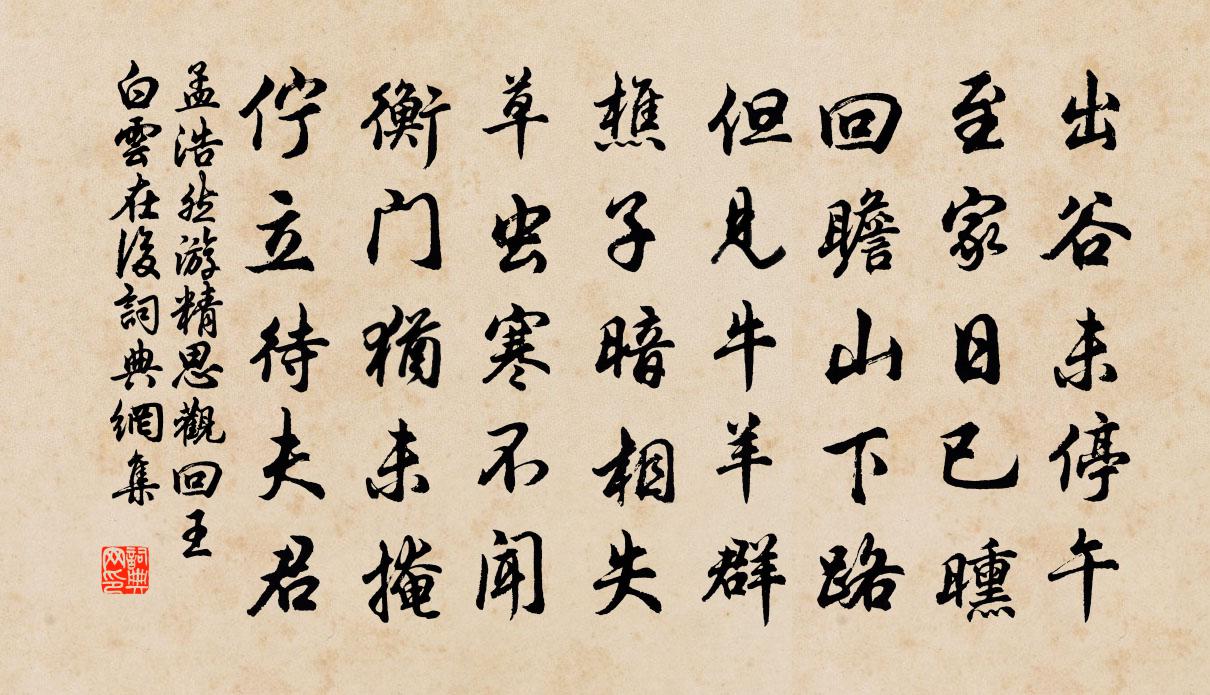 出谷未停午
至家日已曛
回瞻山下路
但見牛羊群
樵子暗相失
草虫寒不聞
衡门猶未掩
佇立待夫君
孟浩然游精思觀回王
白雲在後詞典網集
詞典
网印